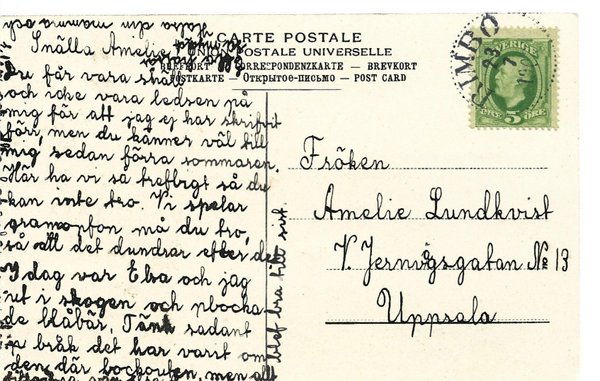 CARTE POSTALE
UNION POSTALE UNIVERSELLE
CORRESPONDENZKARTE — BREVKORT
POSTKARTE — Открытое-письмо — POST CARD
RIMBO
SVERIGE
5
ÖRE
Snälla Amelie
Du får vara snäll
och icke vara ledsen på
mig för att jag ej har skrifvit
förr, men du känner väl till
mig sedan förra sommaren.
Här ha vi så trefligt så du
kan inte tro. Vi spelar
gramofon må du tro,
så att det dundrar efter det
I dag var Elsa och jag
ut i skogen och plocka-
de blåbär. Tänk sådant
bråk det har varit om
den där bockouten, men allt
blef bra till sist.
Fröken
Amelie Lundkvist
V. Jernvägsgatan № 13
Uppsala